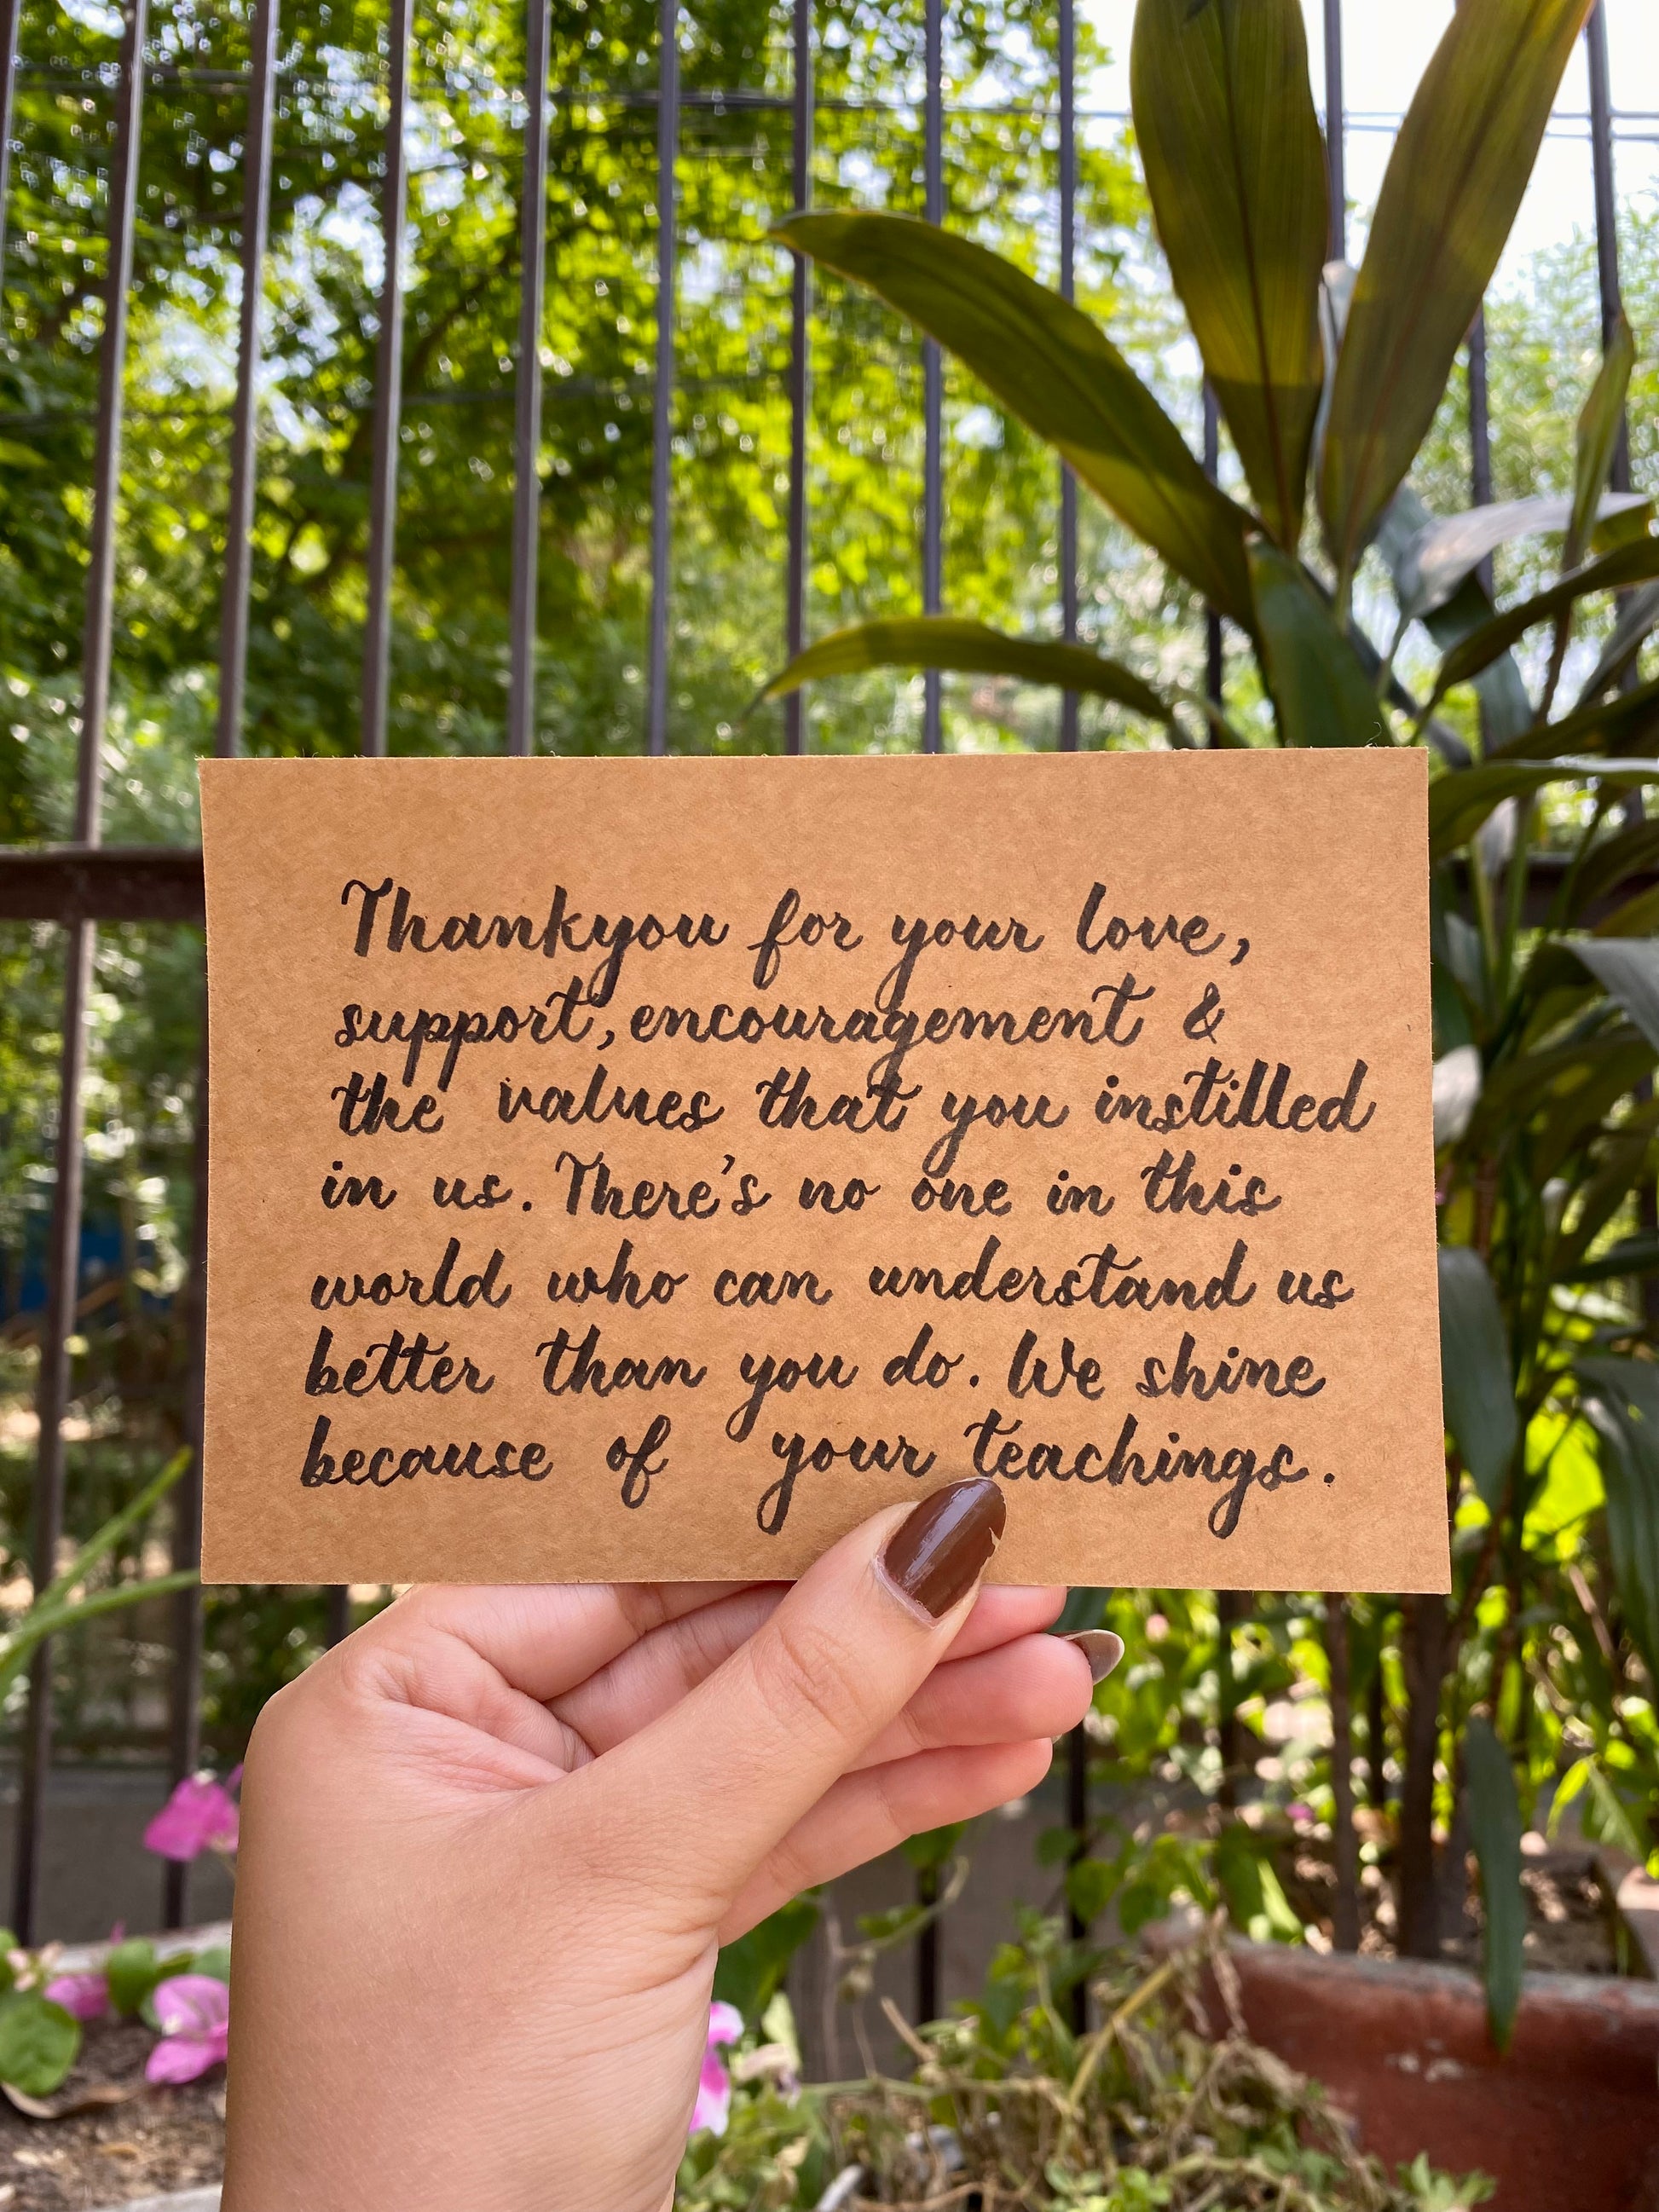 Thankyou for your love,
support, encouragement &
the values that you instilled
in us. There's no one in this
world who can understand us
better than you do. We shine
because of your teachings.